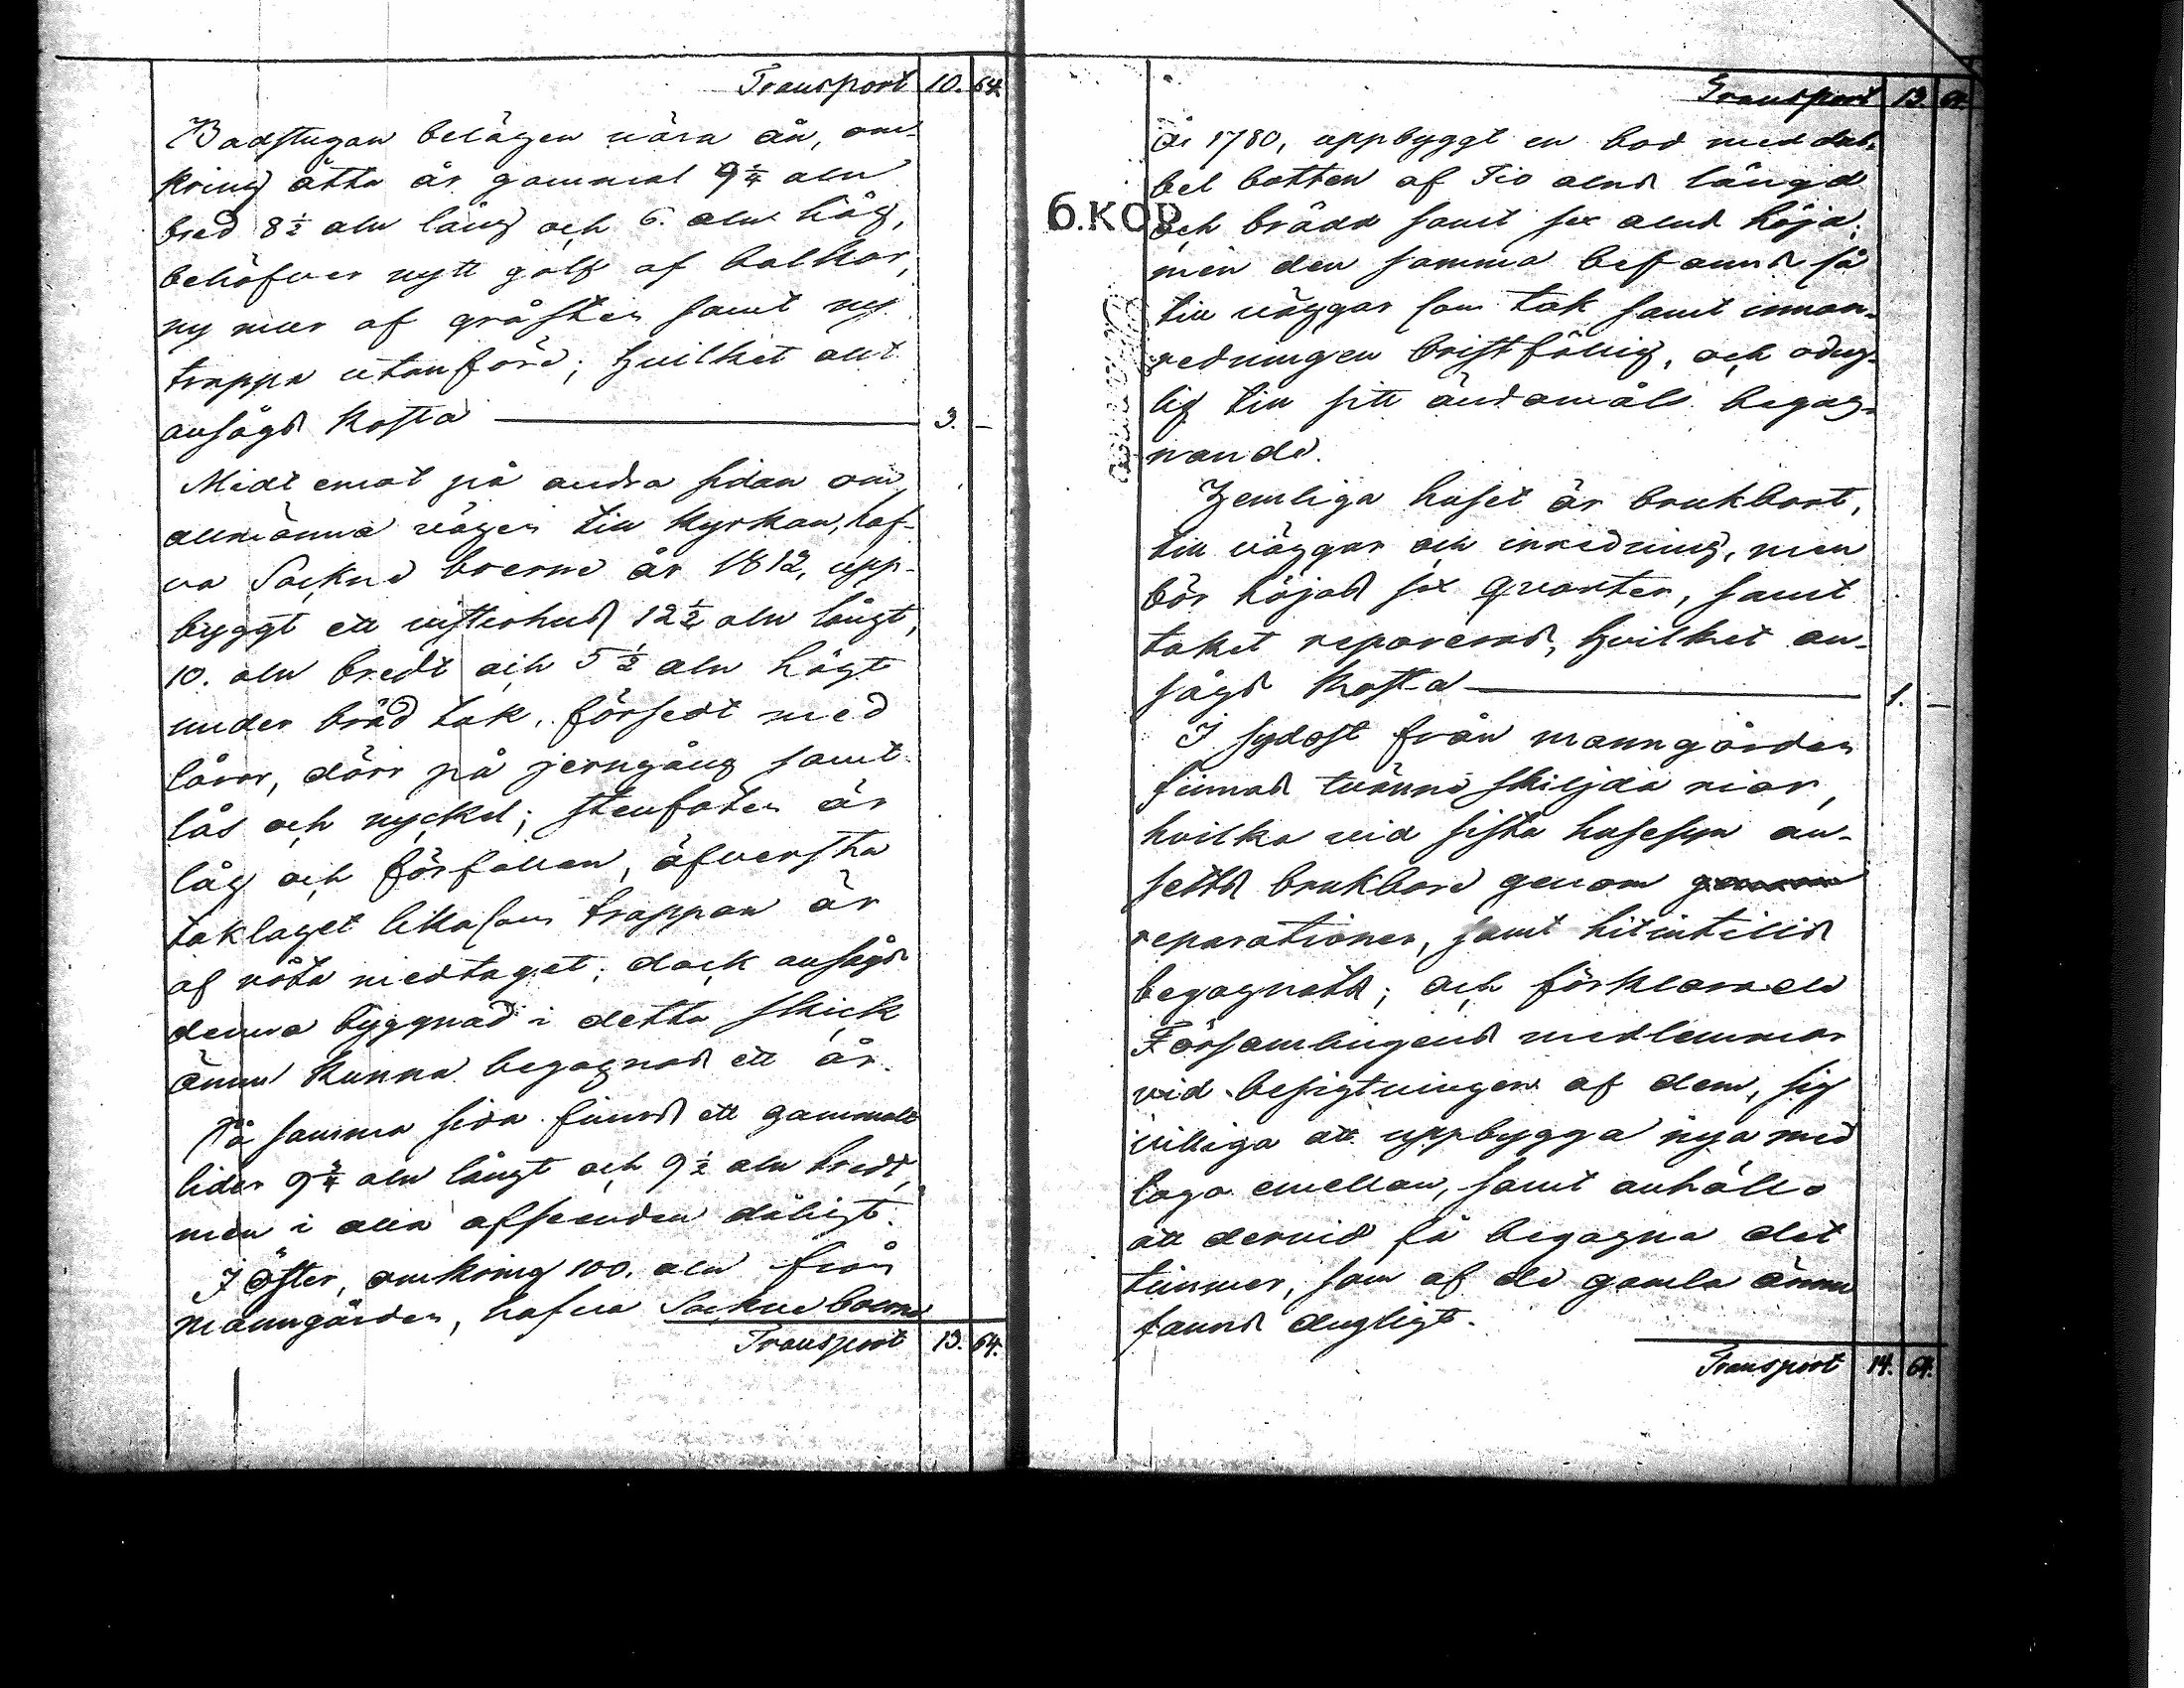 Transport 10. 64.
Badstugan belägen nära ån, om-
kring åtta år gammal 9 1/4 aln
bred 8 1/2 aln lång och 6. aln hög,
behöfver nytt golf af balkar,
ny mur af gråsten samt ny
trappa utanföre; hvilket alt
ansågs kosta — 3. —
Midt emot på andra sidan om
allmänna vägen till kyrkan, haf-
va Sockne boerne år 1812, upp-
byggt ett visterhus 12 1/2 aln långt,
10. aln bredt och 5 1/2 aln högt
under bräd tak, försedt med
lårar, dörr på jerngång samt
lås och nyckel; stenfoten är
låg och förfallen, öfversta
taklaget likasom trappan är
af röta medtaget; dock ansågs
denna byggnad i detta skick
ännu kunna begagnas ett år.
På samma sida finnes ett gammalt
lider 9 3/4 aln långt och 9 1/2 aln bredt,
men i alla afseenden dåligt.
I öster, omkring 100. aln från
manngården, hafva Sockne boerne
Transport 13. 64.
Transport 13. 64.
år 1780, uppbyggt en bod med dub-
bel botten af Tio alns längd
och brädd samt sex alns höjd;
men den samma befanns så
till väggar som tak samt innan-
redningen bristfällig, och odug-
lig till sitt ändamåls begag-
nande.
б.КОР
Hemliga huset är brukbart,
till väggar och inredning, men
bör höjas sex qvarter, samt
taket repareras, hvilket an-
sågs kosta — 1. —
I sydost från manngården
finnas tvänne skiljda riar,
hvilka vid sista husesyn an-
setts brukbare genom
reparationer, samt hitintills
begagnats; och förklarade
Församlingens medlemmar
vid besigtningen af dem, sig
villiga att uppbygga nya med
loga emellan, samt anhöllo
att dervid få begagna det
timmer, som af de gamla ännu
fanns dugligt.
Transport 14. 64.